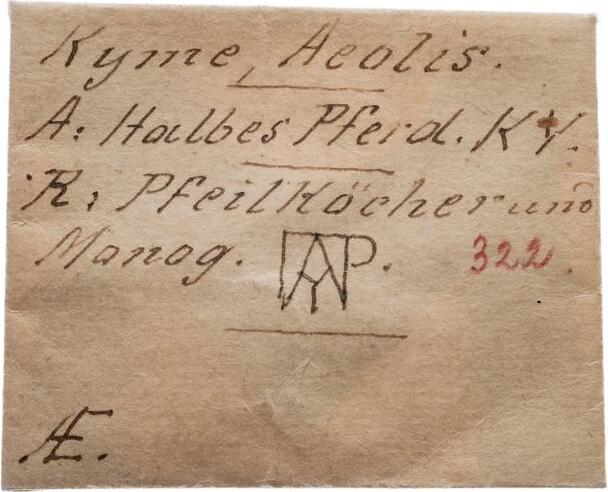 Kyme, Aeolis.
A: Halbes Pferd. KY.
R: Pfeil Köcher und
Monog. 322
Æ.